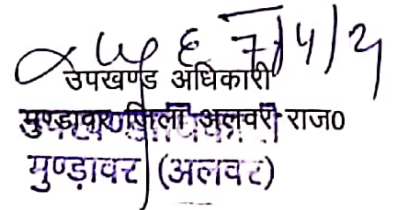 7/4/21
उपखण्ड अधिकारी
मुण्डावर जिला अलवर राज0
मुण्डावर (अलवर)